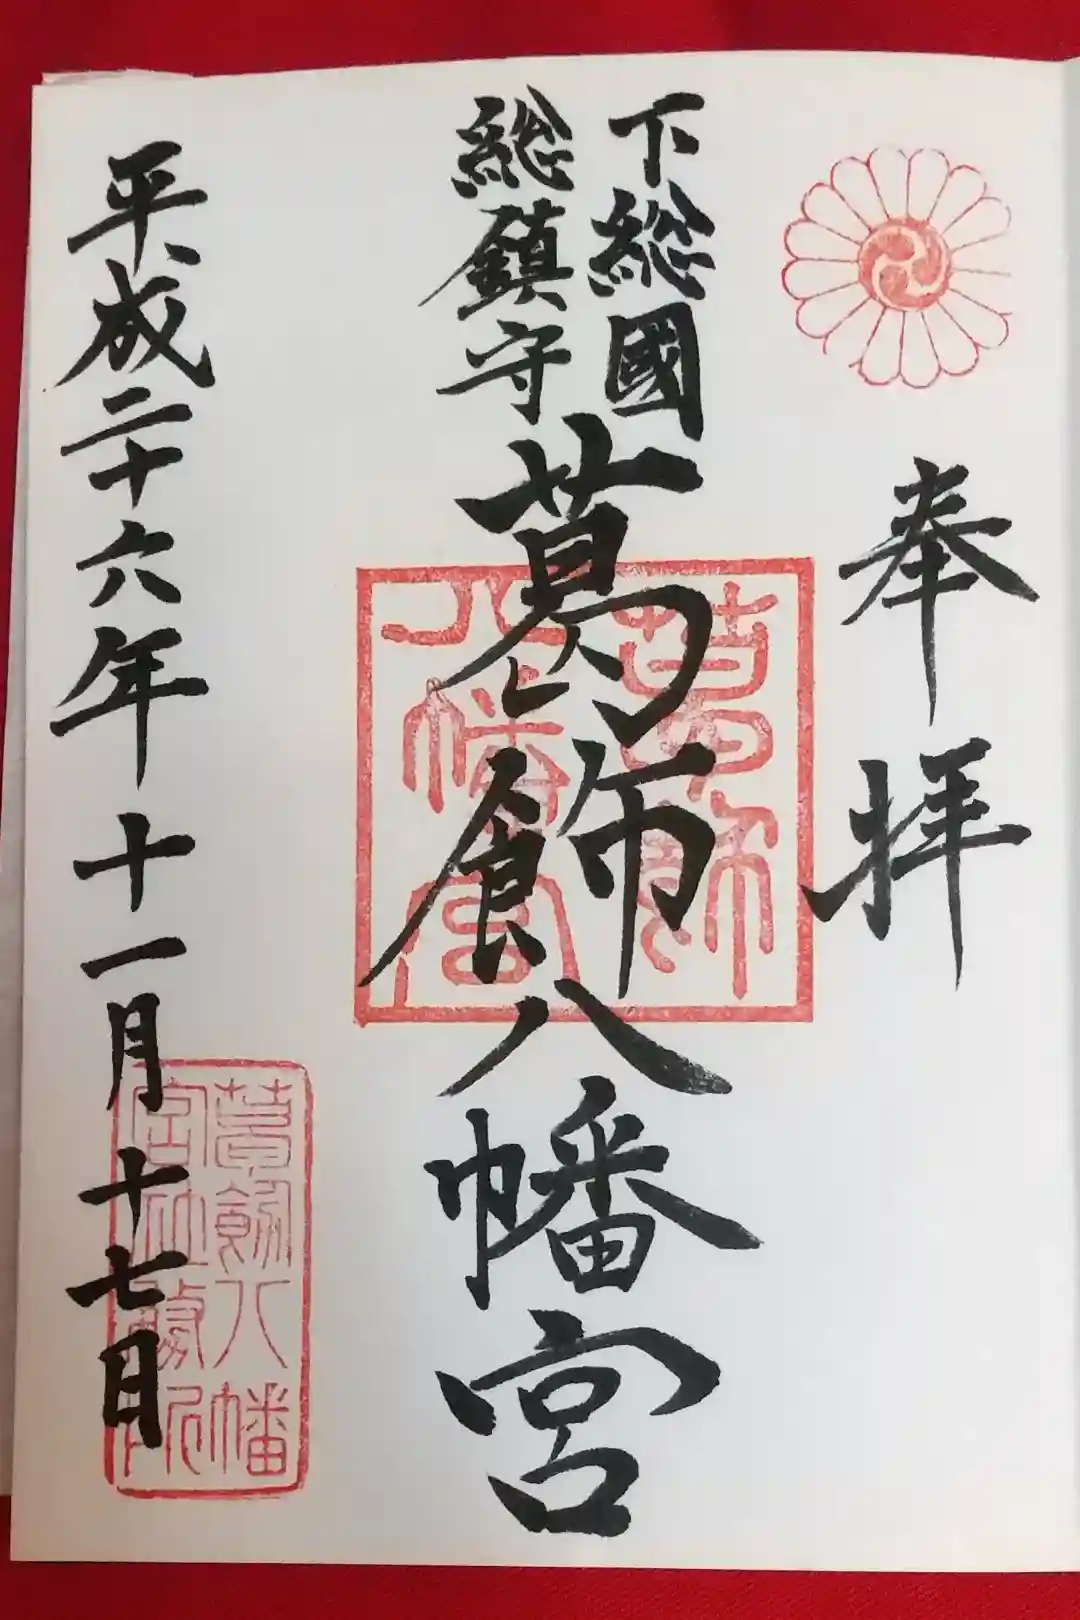 奉拝
下総國
総鎮守
葛飾八幡宮
葛飾
八幡宮
平成二十六年十一月十七日
葛飾八幡
宮社務所